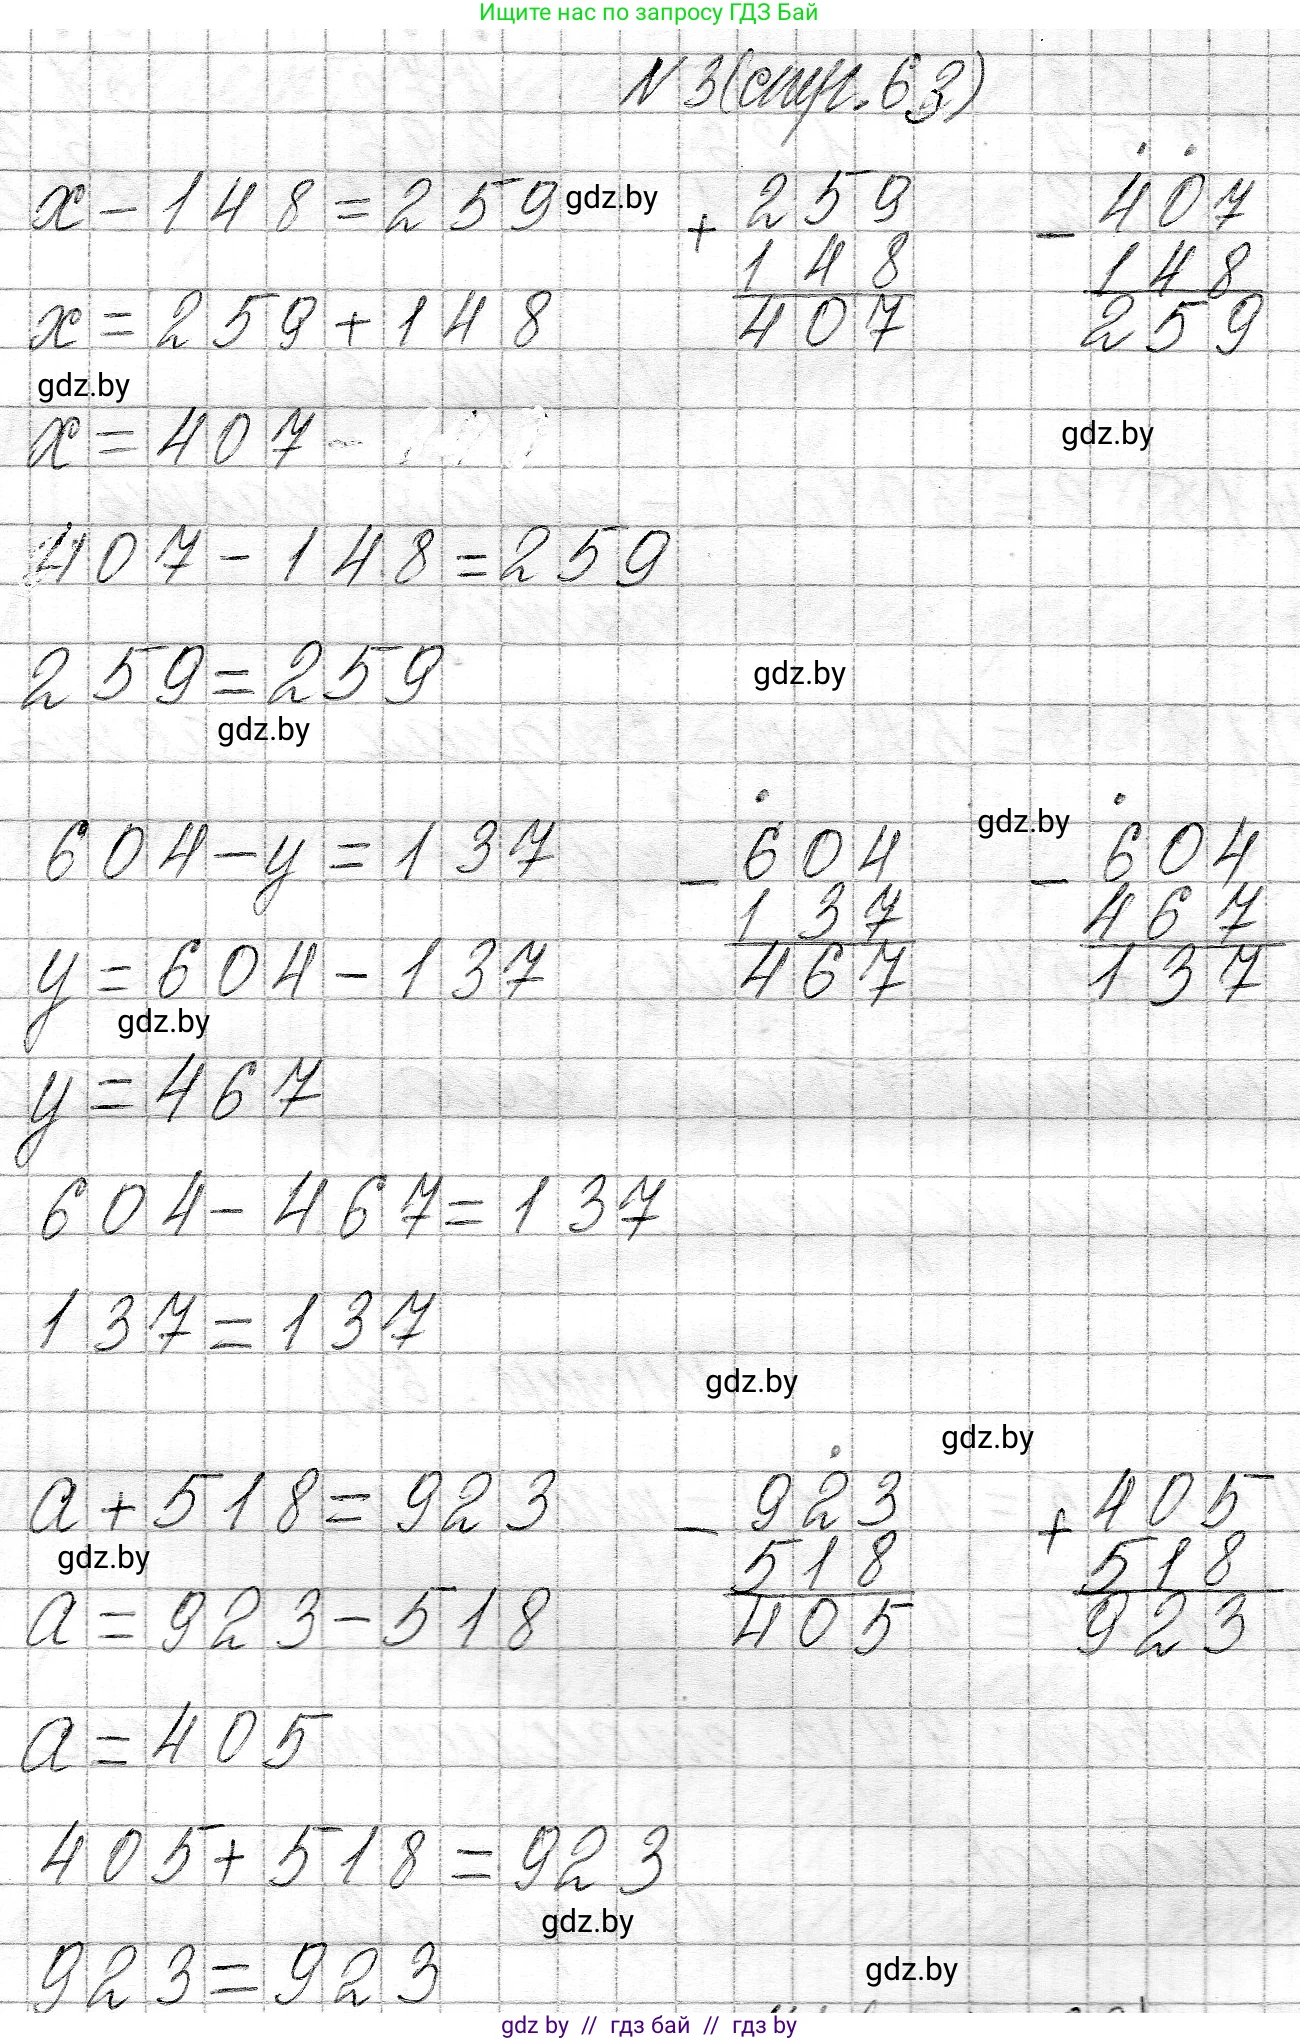 Ищите нас по запросу ГДЗ Бай
N 3(стр. 63)
x - 148 = 259 gdz.by
+ 259
148
407
- 407
148
259
x = 259 + 148
gdz.by
x = 407
gdz.by
407 - 148 = 259
259 = 259
gdz.by
gdz.by
604 - y = 137
- 604
137
467
gdz.by
- 604
467
137
y = 604 - 137
gdz.by
y = 467
604 - 467 = 137
137 = 137
gdz.by
gdz.by
a + 518 = 923
- 923
518
405
+ 405
518
923
gdz.by
a = 923 - 518
a = 405
405 + 518 = 923
gdz.by
923 = 923
gdz.by
gdz by // гдз бай // гдз by